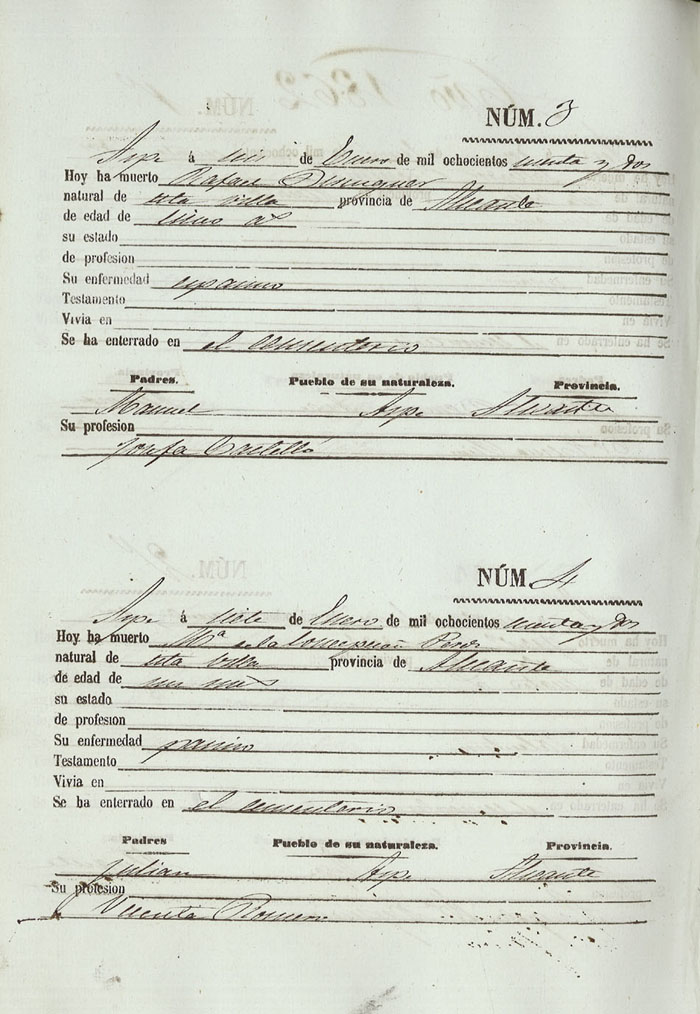 NÚM. 3
Aspe á seis de Enero de mil ochocientos sesenta y dos
Hoy ha muerto Rafael Dominguez
natural de esta villa provincia de Alicante
de edad de cinco as
su estado
de profesion
Su enfermedad espasmo
Testamento
Vivia en
Se ha enterrado en el cementerio
Padres. Pueblo de su naturaleza. Provincia.
Manuel Aspe Alicante
Su profesion
Josefa Castelló
NÚM. 4
Aspe á siete de Enero de mil ochocientos sesenta y dos
Hoy ha muerto Mª de la Concepcion
natural de esta villa provincia de Alicante
de edad de un mes
su estado
de profesion
Su enfermedad
Testamento
Vivia en
Se ha enterrado en el cementerio
Padres Pueblo de su naturaleza. Provincia.
Julian Aspe Alicante
Su profesion
Vicenta Romero